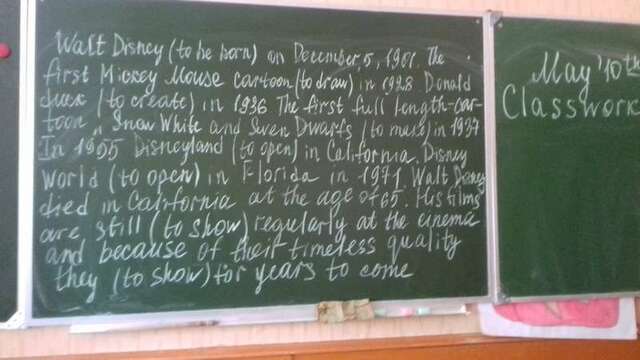 Walt Disney (to be born) on December, 5, 1901. The
first Mickey Mouse cartoon (to draw) in 1928. Donald
duck (to create) in 1936 The first full length-car-
toon „ Snow White and Seven Dwarfs (to make) in 1937
In 1955 Disneyland (to open) in California. Disney
World (to open) in Florida in 1971. Walt Disney
died in California at the age of 65. His films
are still (to show) regularly at the cinema
and because of their timeless quality
they (to show) for years to come
May 10th
Classwork